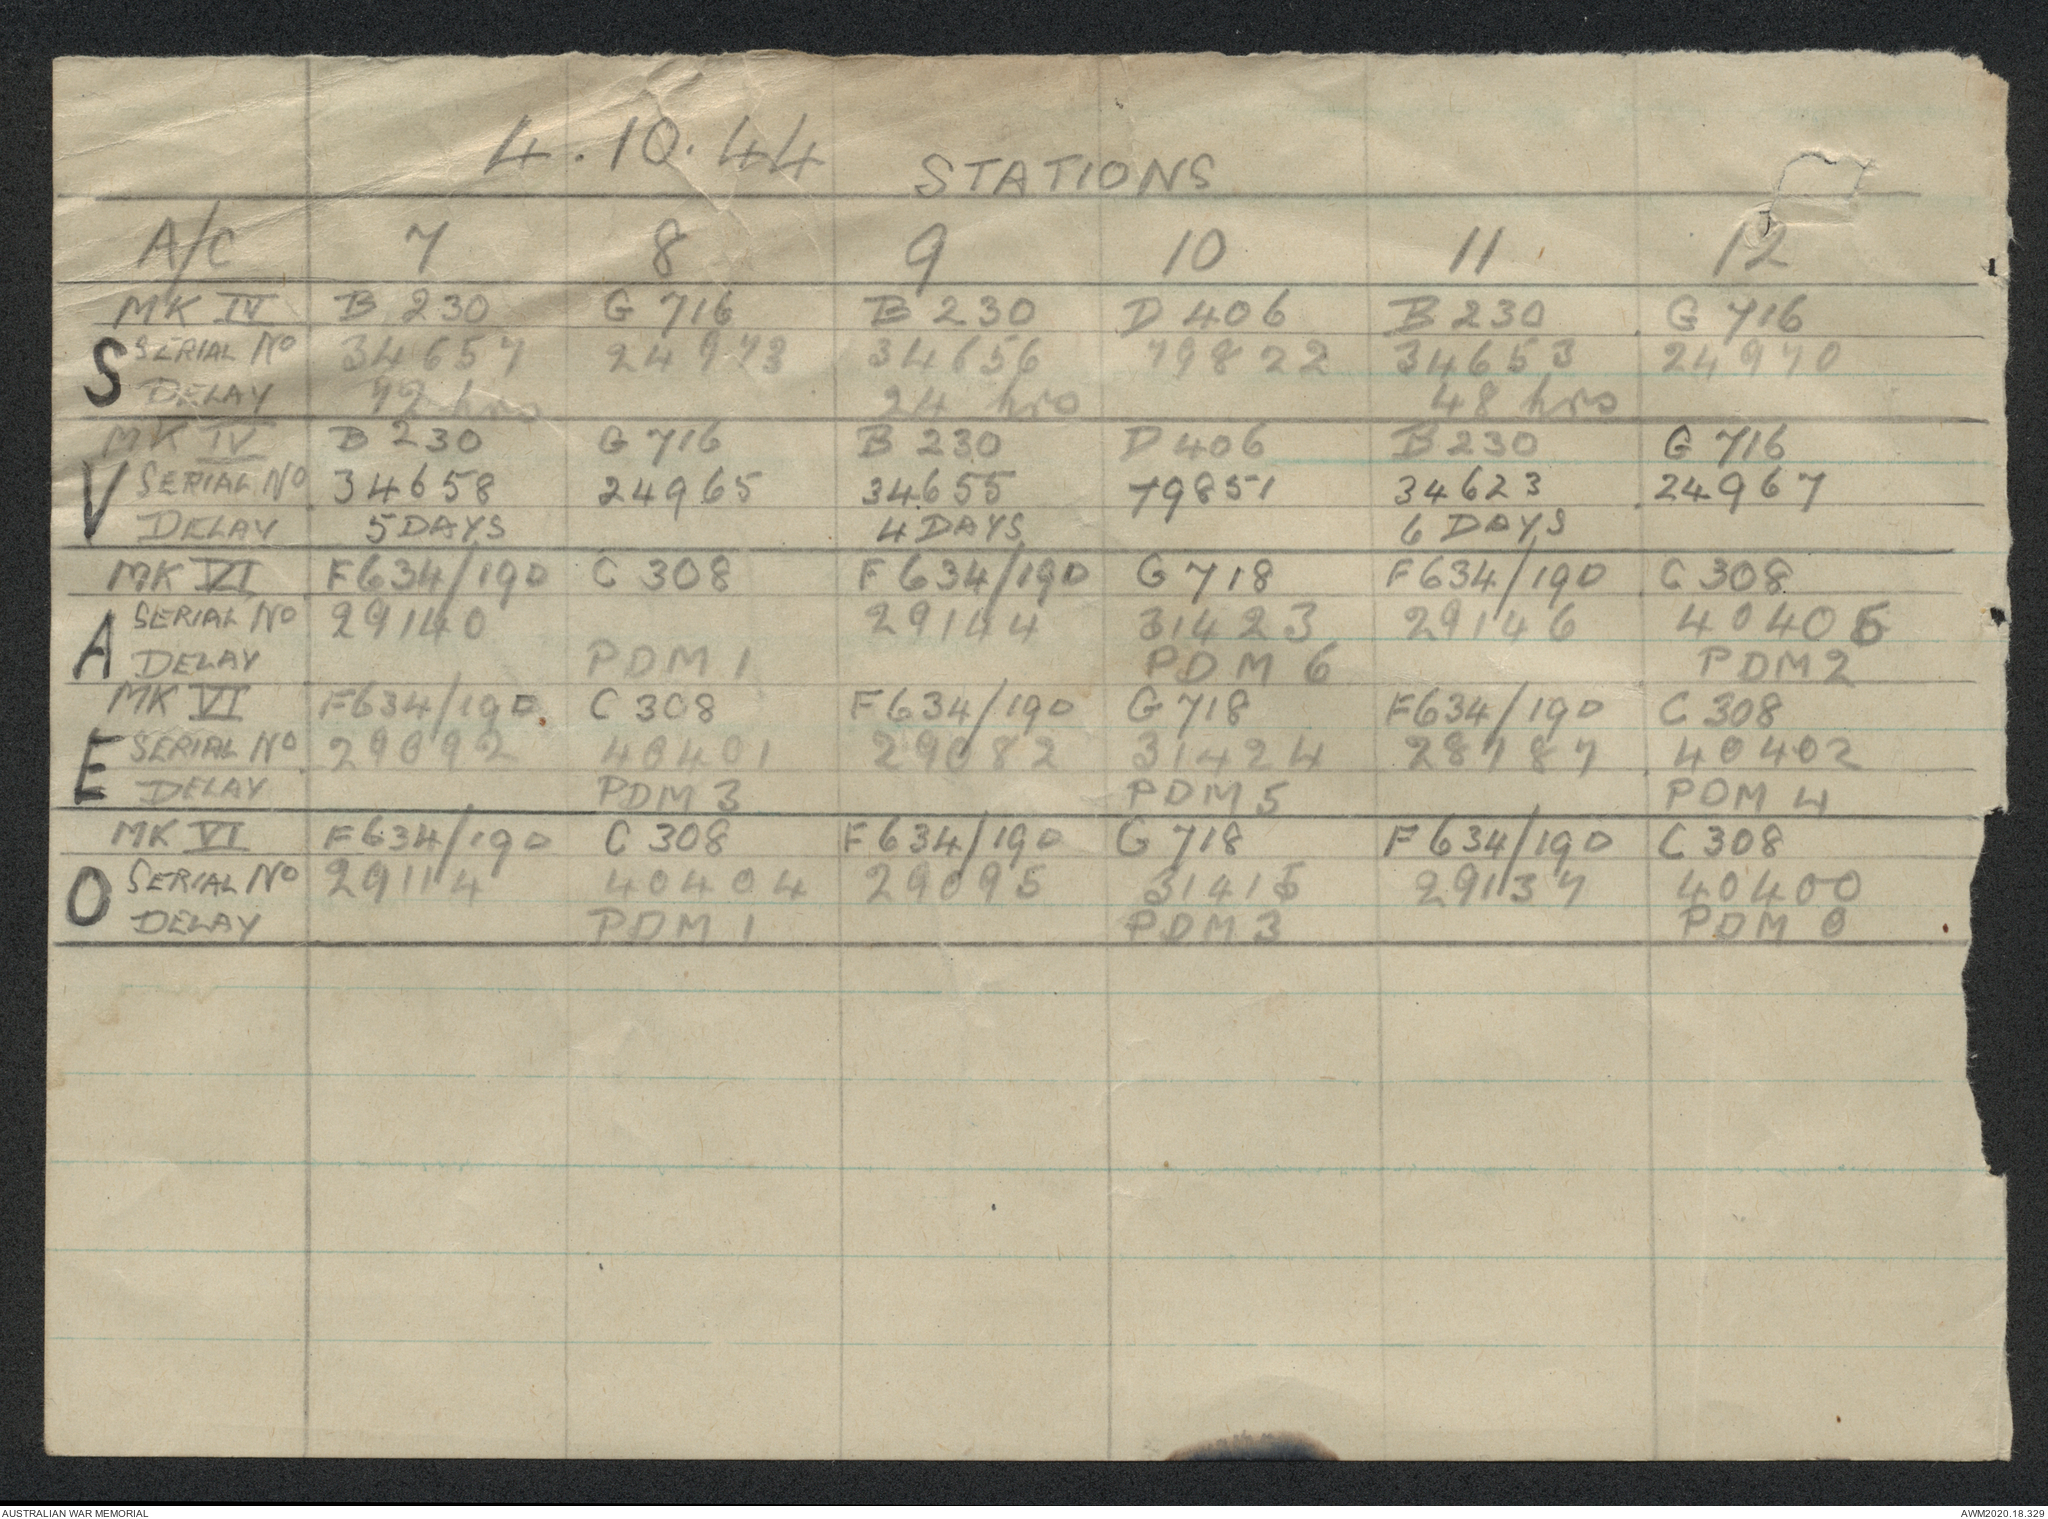 4.10.44
STATIONS
A/C 7 8 9 10 11 12
MK IV B 230 G 716 B 230 D 406 B 230 G 716
S SERIAL No 34657 24973 34656 79822 34653 24970
DELAY 72 hrs 24 hrs 48 hrs
MK IV B 230 G 716 B 230 D 406 B 230 G 716
V SERIAL No 34658 24965 34655 79851 34623 24967
DELAY 5 DAYS 4 DAYS 6 DAYS
MK VI F634/190 C 308 F 634/190 G 718 F634/190 C 308
A SERIAL No 29140 29144 31423 29146 40405
DELAY PDM 1 PDM 6 PDM 2
MK VI F634/190 C 308 F634/190 G 718 F634/190 C 308
E SERIAL No 29092 40401 29082 31424 28787 40402
DELAY PDM 3 PDM 5 PDM 4
MK VI F634/190 C 308 F634/190 G 718 F 634/190 C 308
O SERIAL No 29114 40404 29095 31415 29137 40400
DELAY PDM 1 PDM 3 PDM 0
AUSTRALIAN WAR MEMORIAL
AWM2020.18.329